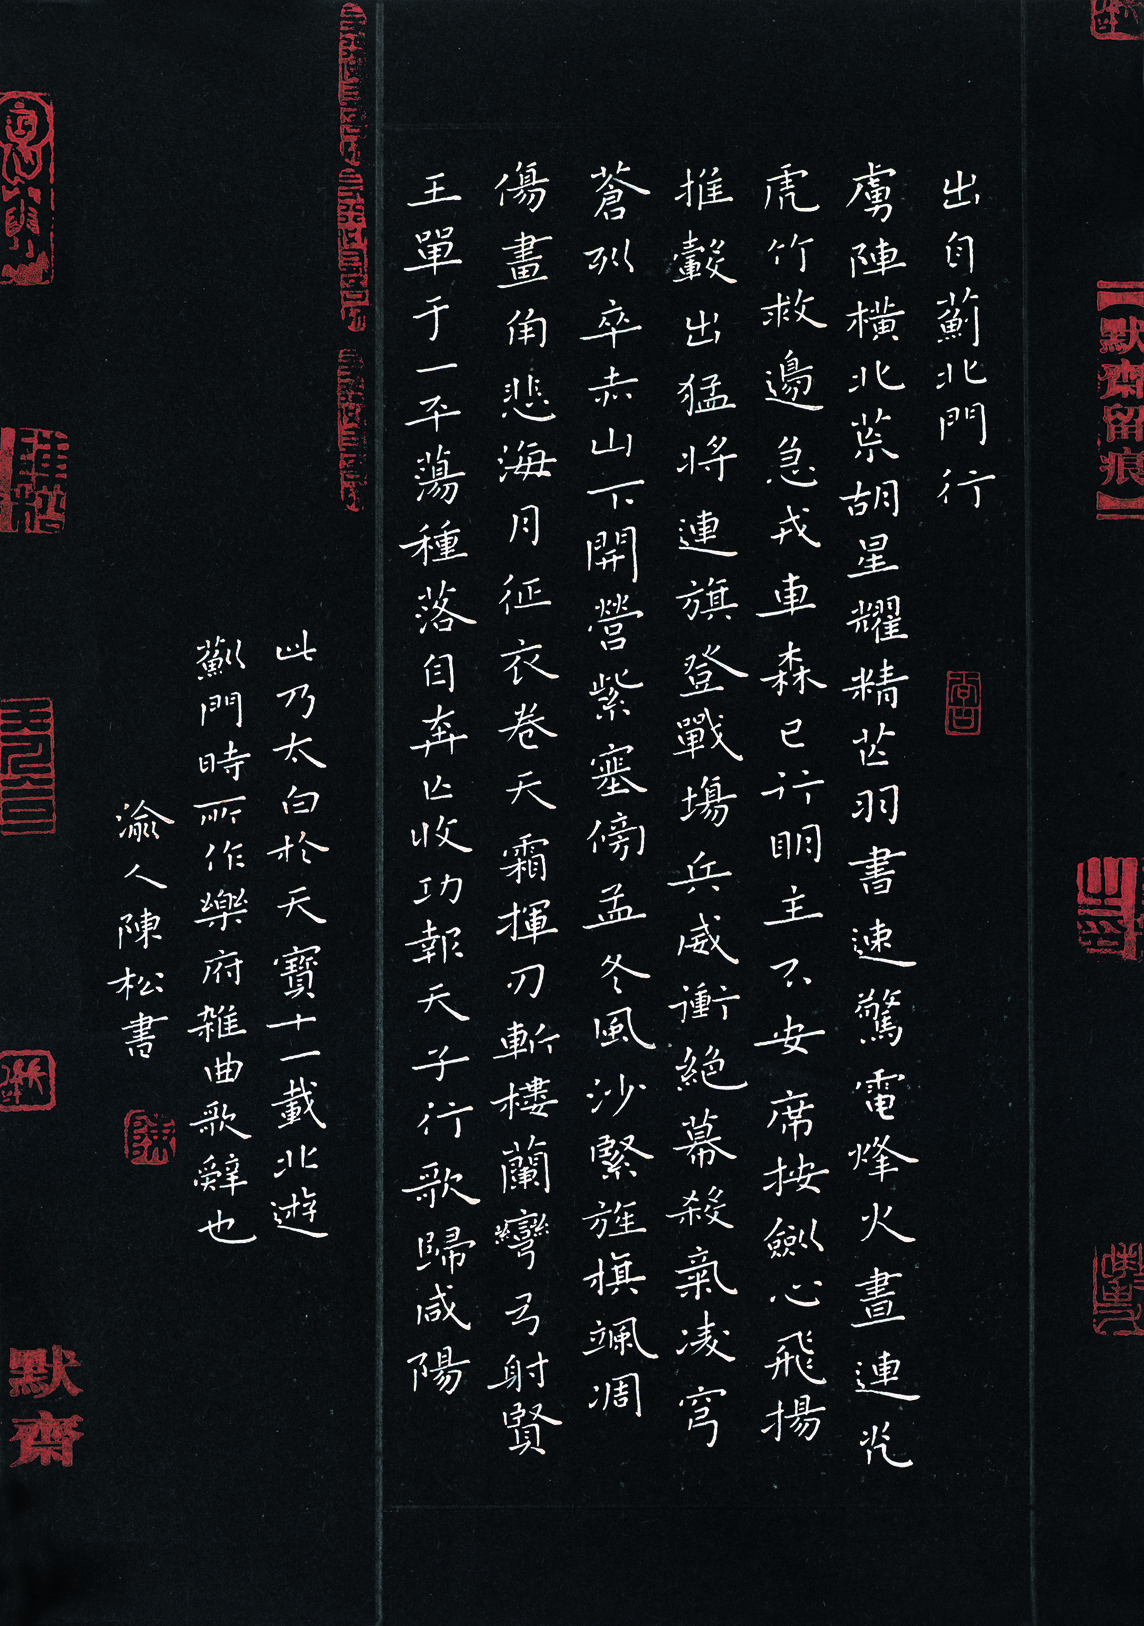 出自薊北門行
虜陣橫北荒胡星耀精芒羽書速驚電烽火晝連光
虎竹救邊急戎車森已行明主不安席按劍心飛揚
推轂出猛將連旗登戰場兵威衝絕幕殺氣凌穹
蒼列卒赤山下開營紫塞傍孟冬風沙緊旌旗颯凋
傷畫角悲海月征衣卷天霜揮刃斬樓蘭彎弓射賢
王單于一平蕩種落自奔亡收功報天子行歌歸咸陽
此乃太白於天寶十一載北遊
薊門時所作樂府雜曲歌辭也
渝人陳松書
【默齋留痕】
默齋